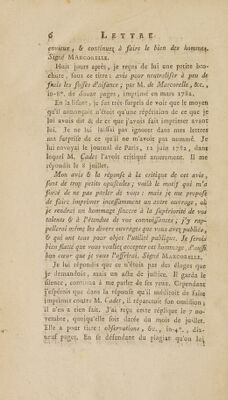 6 LETTRE
envieux, & continuez à faire le bien des hommes.
Signé MARCORELLE.
Huit jours après, je reçus de lui une petite brochure,
sous ce titre: avis pour neutraliser à peu de
frais les fosses d'aisance, par M. de Marcorelle, &c.,
in-8°. de douze pages, imprimé en mars 1782.
En la lisant, je fus très surpris de voir que le moyen
qu'il annonçait n'étoit qu'une répétition de ce que je
lui avois dit & de ce que j'avois fait imprimer avant
lui. Je ne lui laissai pas ignorer dans mes lettres
ma surprise de ce qu'il ne m'avoit pas nommé. Je
lui envoyai le journal de Paris, 12 juin 1782, dans
lequel M. Cadet l'avoit critiqué amèrement. Il me
répondit le 8 juillet.
Mon avis & la réponse à la critique de cet avis,
sont de trop petits opuscules; voilà le motif qui m'a
forcé de ne pas parler de vous: mais je me propose
de faire imprimer incessamment un autre ouvrage, où
je rendrai un hommage sincere à la supériorité de vos
talents & à l'étendue de vos connoissances; j'y rappellerai
même les divers ouvrages que vous avez publiés,
& qui ont tous pour objet l'utilité publique. Je serois
bien flatté que vous voulez accepter cet hommage, d'aussi
bon cœur que je vous l'offrirai. Signé MARCORELLE.
Je lui répondis que ce n'étoit pas des éloges que
je demandois, mais un acte de justice. Il garda le
silence, continua à me parler de ses vues. Cependant
j'espérois que dans la réponse qu'il méditoit de faire
imprimer contre M. Cadet, il répareroit son omission;
il n'en a rien fait. J'ai reçu cette réplique le 7 novembre,
quoiqu'elle soit datée du mois de juillet.
Elle a pour titre: observations, &c., in-4°., dix-neuf
pages. En se défendant du plagiat qu'on lui